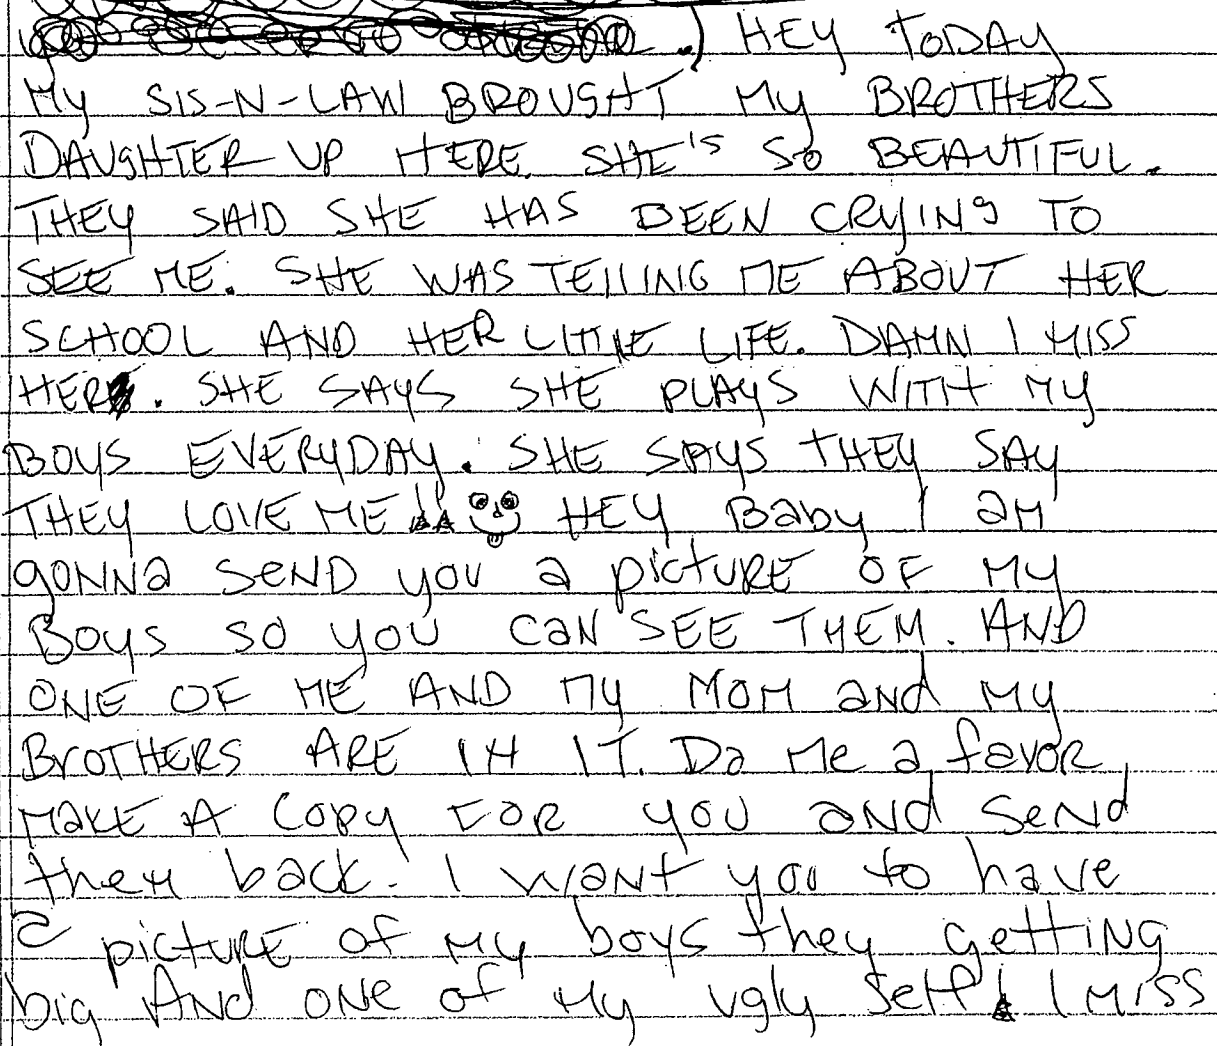 HEY TODAY
MY SIS-N-LAW BROUGHT MY BROTHERS
DAUGHTER UP HERE. SHE'S SO BEAUTIFUL.
THEY SAID SHE HAS BEEN CRYING TO
SEE ME. SHE WAS TELLING ME ABOUT HER
SCHOOL AND HER LITTLE LIFE. DAMN I MISS
HER. SHE SAYS SHE PLAYS WITH MY
BOYS EVERYDAY. SHE SAYS THEY SAY
THEY LOVE ME!! HEY Baby I am
gonna send you a picture OF MY
Boys so you can SEE THEM. AND
ONE OF ME AND MY MOM and MY
BROTHERS ARE IN IT. Do Me a favor,
MAKE A Copy FOR you and send
them back. I want you to have
a picture of my boys they getting
big And one of My ugly self! I miss